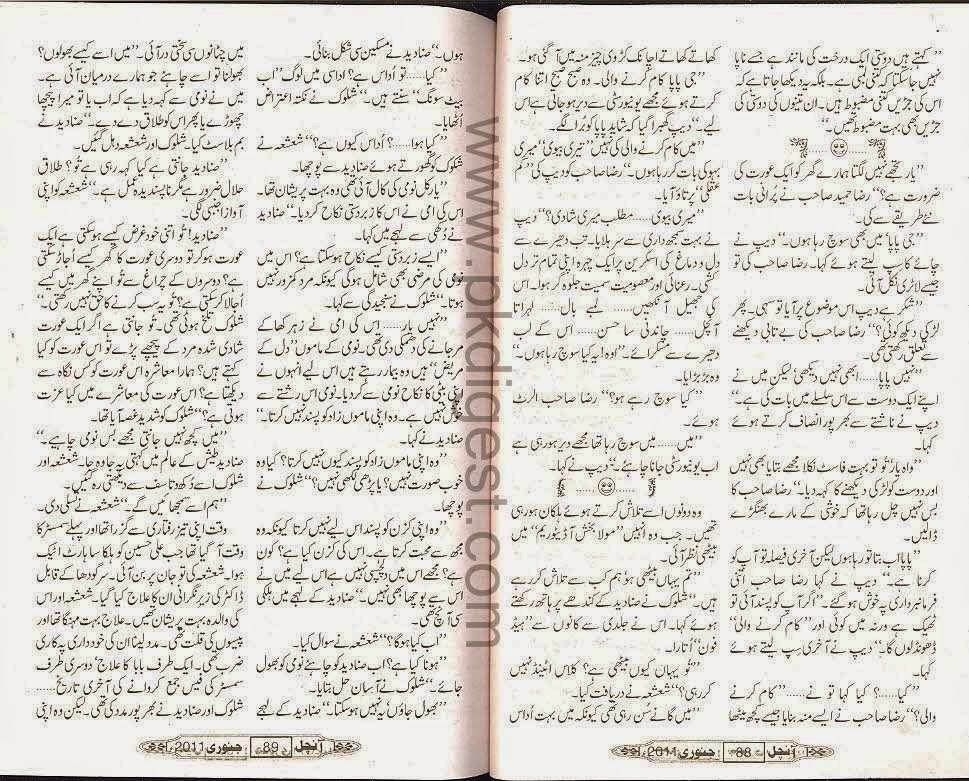 ”کہتے ہیں دوستی ایک درخت کی مانند ہے جسے ناپا
نہیں جا سکتا کہ کتنی لمبی ہے۔ بلکہ یہ دیکھا جاتا ہے کہ
اس کی جڑیں کتنی مضبوط ہیں۔ ان تینوں کی دوستی کی
جڑیں بھی بہت مضبوط تھیں۔“
”یار تجھے نہیں لگتا ہمارے گھر کو ایک عورت کی
ضرورت ہے؟“ رضا حمید صاحب نے پرانی بات
نئے طریقے سے کی۔
”جی پاپا میں بھی سوچ رہا ہوں۔“ دیپ نے
چائے کا سپ لیتے ہوئے کہا۔ رضا صاحب کی تو
جیسے لاٹری نکل آئی۔
”شکر ہے دیپ اس موضوع پر آیا تو سہی۔ پھر
لڑکی دیکھ لوں کوئی؟“ رضا صاحب کی بے تابی دیکھنے
سے تعلق رکھتی تھی۔
”نہیں پاپا...... ابھی نہیں دیکھی‘ لیکن میں نے
اپنے ایک دوست سے اس سلسلے میں بات کی ہے۔“
دیپ نے ناشتے سے بھرپور انصاف کرتے ہوئے
کہا۔
”واہ یار‘ تُو تو بہت فاسٹ نکلا مجھے بتایا بھی نہیں
اور دوست کو لڑکی دیکھنے کا کہہ دیا۔“ رضا صاحب کا
بس نہیں چل رہا تھا کہ خوشی کے مارے بھنگڑے
ڈالیں۔
”پاپا اب بتا تو رہا ہوں لیکن آخری فیصلہ تو آپ کو
کرنا ہے۔“ دیپ نے کہا رضا صاحب اتنی
فرمانبرداری پہ خوش ہو گئے۔ ”اگر آپ کو پسند آئی تو
ٹھیک ہے ورنہ میں کوئی اور ”کام کرنے والی“
ڈھونڈ لوں گا۔“ دیپ نے آخری سپ لیتے ہوئے
کہا۔
”کیا......؟ کیا کہا تو نے...... ”کام کرنے
والی؟“ رضا صاحب نے ایسے منہ بنایا جیسے کچھ میٹھا
کھاتے کھاتے اچانک کڑوی چیز منہ میں آ گئی ہو۔
”جی پاپا کام کرنے والی۔ وہ صبح صبح اتنا کام
کرتے ہوئے مجھے یونیورسٹی سے دیر ہو جاتی ہے اس
لیے۔“ دیپ گھبرا گیا کہ شاید پاپا کو برا لگے۔
”میں کام کرنے والی کی نہیں“ تیری بیوی‘ میری
بہو کی بات کر رہا ہوں۔“ رضا صاحب کو دیپ کی ”کم
عقلی“ پر تاؤ آیا۔
”میری بیوی...... مطلب میری شادی؟“ دیپ
نے بہت سمجھ داری سے سر ہلایا۔ تب دھیرے سے
دل و دماغ کی اسکرین پر ایک چہرہ اپنی تمام تر دل
کشی۔ رعنائی اور معصومیت سمیت جلوہ گر ہوا۔ اس
کی جھیل آنکھیں...... لمبے بال...... لہراتا
آنچل...... چاندنی سا حسن...... اس کے لب
دھیرے سے مسکرائے۔ ”اوہ! یہ کیا سوچ رہا ہوں۔“
وہ بڑبڑایا۔
”کیا سوچ رہے ہو؟“ رضا صاحب الرٹ
ہوئے۔
”میں...... میں سوچ رہا تھا مجھے دیر ہو رہی ہے
اب یونیورسٹی جانا چاہئے۔“ دیپ نے کہا۔
وہ دونوں اسے تلاش کرتے ہوئے ہلکان ہو رہی
تھیں۔ جب وہ انہیں ”مولا بخش آڈیٹوریم“ میں
بیٹھی نظر آئی۔
”تم یہاں بیٹھی ہو ہم کب سے تلاش کر رہے
ہیں۔“ شلوک نے صنادید کے کندھے پر ہاتھ رکھتے
ہوئے کہا۔ اس نے جلدی سے کانوں سے ”ہیڈ
فون“ اُتارا۔
”تُو یہاں کیوں بیٹھی ہے؟ کلاس اٹینڈ نہیں
کر رہی؟“ شعشعہ نے دریافت کیا۔
”میں گانے سُن رہی تھی کیونکہ میں بہت اُداس
آنچل 88 جنوری 2011ء
ہوں۔“ صنادید نے مسکین سی شکل بنائی۔
”کیا...... تو اُداس ہے؟ اداسی میں لوگ ”اب
بیٹ سونگ“ سنتے ہیں۔“ شلوک نے نکتہ اعتراض
اُٹھایا۔
”کیا ہوا......؟ اُداس کیوں ہے؟“ شعشعہ نے
شلوک کو گھورتے ہوئے صنادید سے پوچھا۔
”یار کل نومی کی کال آئی تھی وہ بہت پریشان تھا۔
اس کی امی نے اس کا زبردستی نکاح کر دیا۔“ صنادید
نے دکھی سے لہجے میں کہا۔
”ایسے زبردستی کیسے نکاح ہو سکتا ہے؟ اس میں
نومی کی مرضی بھی شامل ہو گی کیونکہ مرد کمزور نہیں
ہوتا۔“ شلوک نے سنجیدگی سے کہا۔
”نہیں یار...... اس کی امی نے زہر کھا کے
مر جانے کی دھمکی دی تھی۔ نومی کے ماموں ”دل کے
مریض“ ہیں وہ بیمار رہتے ہیں اس لیے انہوں نے
اپنی بیٹی کا نکاح نومی سے کر دیا۔ نومی اس رشتے سے
خوش نہیں ہے۔ وہ اپنی ماموں زاد کو پسند نہیں کرتا۔“
صنادید نے کہا۔
”وہ اپنی ماموں زاد کو پسند کیوں نہیں کرتا؟ کیا وہ
خوب صورت نہیں؟ یا پڑھی لکھی نہیں؟“ شلوک نے
پوچھا۔
”وہ اپنی کزن کو پسند اس لیے نہیں کرتا کیونکہ وہ
مجھ سے محبت کرتا ہے۔ اس کی کزن کیا ہے؟ کون
ہے؟ مجھے اس میں دلچسپی نہیں ہے اس لیے میں نے
اس سے پوچھا بھی نہیں۔“ صنادید کے لہجے میں ہلکی
سی آنچ تھی۔
”اب کیا ہوگا؟“ شعشعہ نے سوال کیا۔
”ہونا کیا ہے؟ اب صنادید کو چاہئے نومی کو بھول
جائے۔“ شلوک نے آسان حل بتایا۔
”بھول جاؤں‘ یہ نہیں ہو سکتا۔“ صنادید کے لہجے
میں چٹانوں سی سختی در آئی۔ ”میں اسے کیسے بھولوں؟
بھولنا تو اسے چاہئے جو ہمارے درمیان آئی ہے۔
میں نے نومی سے کہہ دیا ہے کہ اب یا تو میرا پیچھا
چھوڑے یا پھر اس کو طلاق دے دے۔“ صنادید نے
بم بلاسٹ کیا۔ شلوک اور شعشعہ دہل گئیں۔
”صنادید جانتی ہے کیا کہہ رہی ہے تُو؟ طلاق
حلال ضرور ہے مگر ناپسندیدہ عمل ہے۔“ شعشعہ کو اپنی
آواز اجنبی لگی۔
”صنادید! تُو اتنی خود غرض کیسے ہو سکتی ہے ایک
عورت ہو کر تو دوسری عورت کا گھر کیسے اُجاڑ سکتی
ہے؟ دوسروں کے چراغ سے تُو اپنے گھر میں کیسے
اُجالا کر سکتی ہے؟ تُو یہ سب کرنے کا حق نہیں رکھتی۔“
شلوک تلخ ہوئی تھی۔ تُو جانتی ہے اگر ایک عورت
شادی شدہ مرد کے پیچھے پڑے تو اس عورت کو کیا
کہتے ہیں؟ ہمارا معاشرہ اس عورت کو کس نگاہ سے
دیکھتا ہے؟ اس عورت کی معاشرے میں کیا عزت
ہوتی ہے؟“ شلوک کو شدید غصہ آیا تھا۔
”میں کچھ نہیں جانتی مجھے بس نومی چاہیے۔“
صنادید طیش کے عالم میں کہتی یہ جا وہ جا۔ شعشعہ اور
شلوک اسے دکھ و تاسف سے دیکھتی رہ گئیں۔
”ہم اسے سمجھائیں گے۔“ شعشعہ نے تسلی دی۔
وقت اپنی تیز رفتاری سے گزر رہا تھا اور پہلے سمسٹر کا
وقت آ گیا تھا جب علی حسین کو ہلکا سا ہارٹ اٹیک
ہوا۔ شعشعہ کی تو جان پر بن آئی۔ سرگودھا کے قابل
ڈاکٹر کی زیر نگرانی ان کا علاج کیا گیا۔ شعشعہ اور اس
کی والدہ بہت پریشان تھیں۔ علاج بہت مہنگا تھا اور
پیسوں کی قلت تھی۔ مدد لینا ان کی خودداری پہ کاری
ضرب تھی۔ ایک طرف بابا کا علاج‘ دوسری طرف
سمسٹر کی فیس جمع کروانے کی آخری تاریخ......
شلوک اور صنادید نے بھرپور مدد کی تھی۔ لیکن وہ اپنی
آنچل 89 جنوری 2011ء
www.pkdigest.com